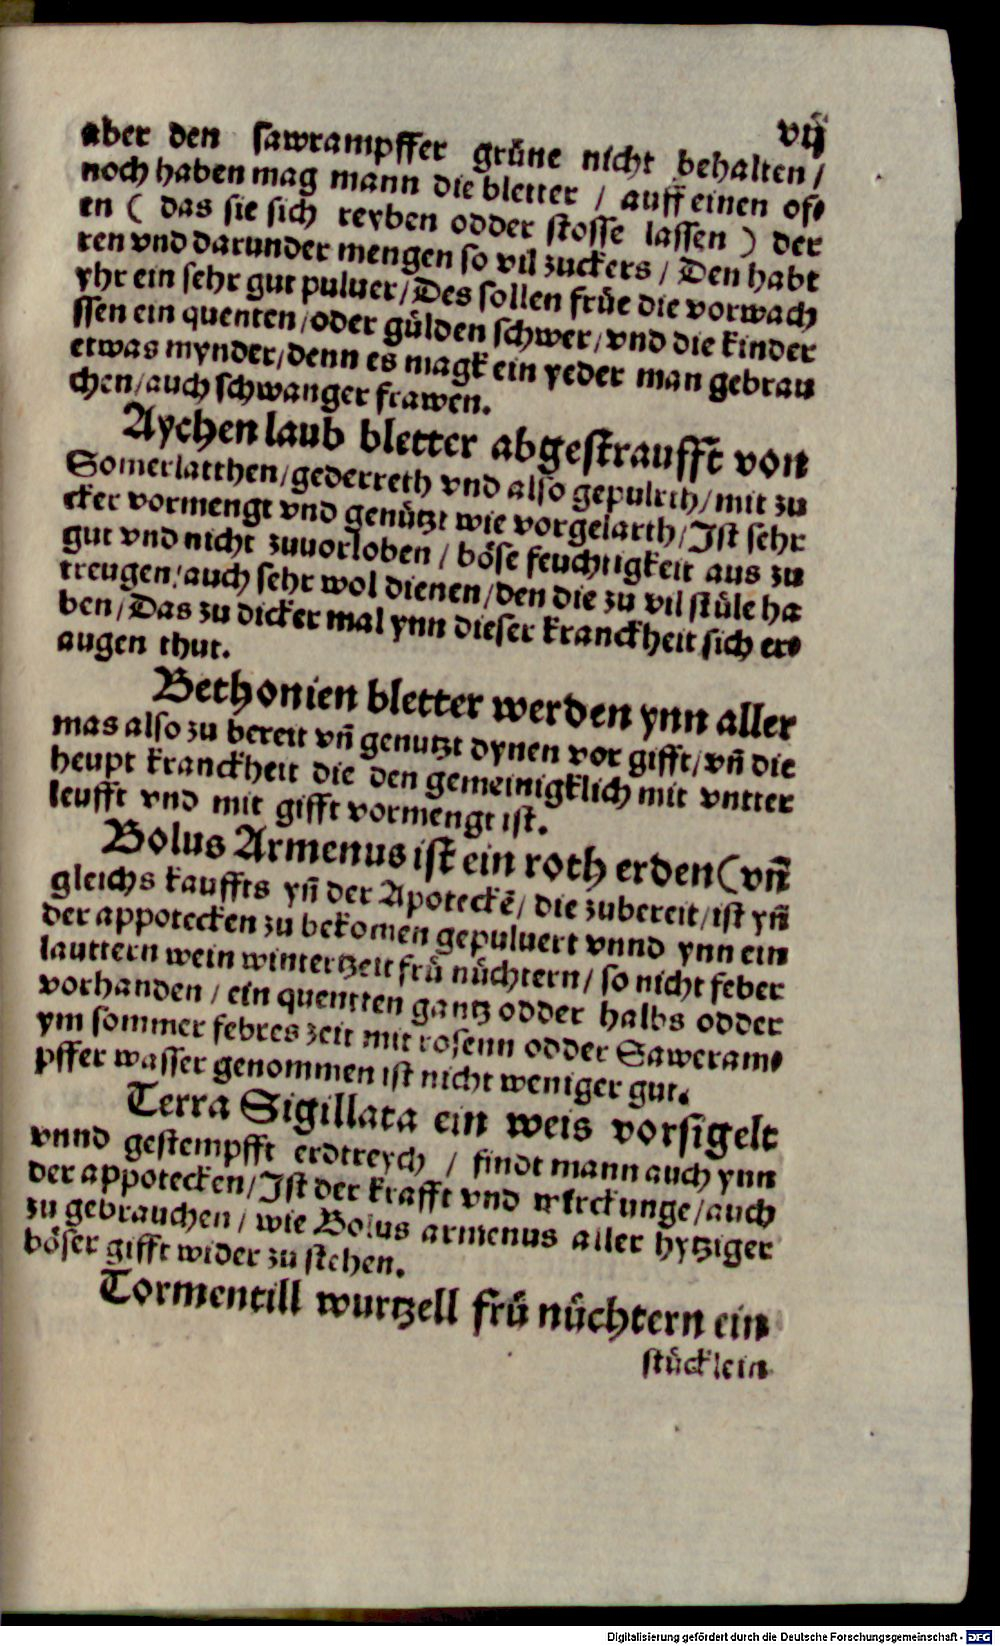 vij
aber den sawrampffer grüne nicht behalten /
noch haben mag mann die bletter / auff einen of⸗
en ( das sie sich reyben odder stosse lassen ) der
ren vnd darunder mengen so vil zuckers / Den habt
yhr ein sehr gut puluer / Des sollen früe die vorwach
ssen ein quenten / oder gülden schwer / vnd die kinder
etwas mynder / denn es magk ein yeder man gebrau
chen / auch schwanger frawen.
Aychen laub bletter abgestraufft von
Somerlatthen / gederreth vnd also gepulrth / mit zu
cker vormengt vnd genützt wie vorgelarth / Ist sehr
gut vnd nicht zuuorloben / böse feuchtigkeit aus zu
treugen / auch sehr wol dienen / den die zu vil stüle ha
ben / Das zu dicker mal ynn dieser kranckheit sich er⸗
augen thut.
Bethonien bletter werden ynn aller
mas also zu bereit vñ genutzt dynen vor gifft / vñ die
heupt kranckheit die den gemeinigklich mit vntter
leufft vnd mit gifft vormengt ist.
Bolus Armenus ist ein roth erden ( vñ
gleichs kauffts yñ der Apoteckē / die zubereit / ist yñ
der appotecken zu bekomen gepuluert vnnd ynn ein
lauttern wein wintertzeit frü nüchtern / so nicht feber
vorhanden / ein quentten gantz odder halbs odder
ym sommer febres zeit mit rosenn odder Saweram⸗
pffer wasser genommen ist nicht weniger gut.
Terra Sigillata ein weis vorsigelt
vnnd gestempfft erdtreych / findt mann auch ynn
der appotecken / Ist der krafft vnd wirckunge / auch
zu gebrauchen / wie Bolus armenus aller hytziger
böser gifft wider zu stehen.
Tormentill wurtzell frü nüchtern ein
stücklein
Digitalisierung gefördert durch die Deutsche Forschungsgemeinschaft - DFG